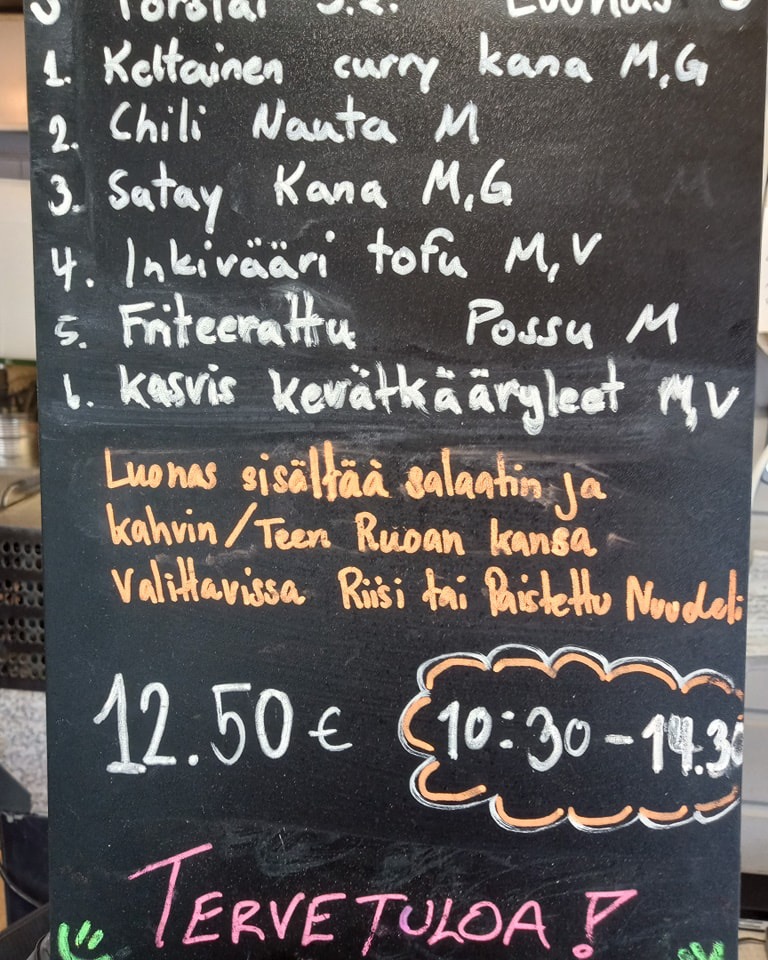 Torstai 5.2. Luonas
1. Keltainen curry kana M,G
2. Chili Nauta M
3. Satay Kana M,G
4. Inkivääri tofu M,V
5. Friteerattu Possu M
6. Kasvis kevätkääryleet M,V
Luonas sisältää salaatin ja
kahvin/Teen Ruoan kansa
Valittavissa Riisi tai Paistettu Nuudeli
12.50€
10:30-14.30
TERVETULOA!